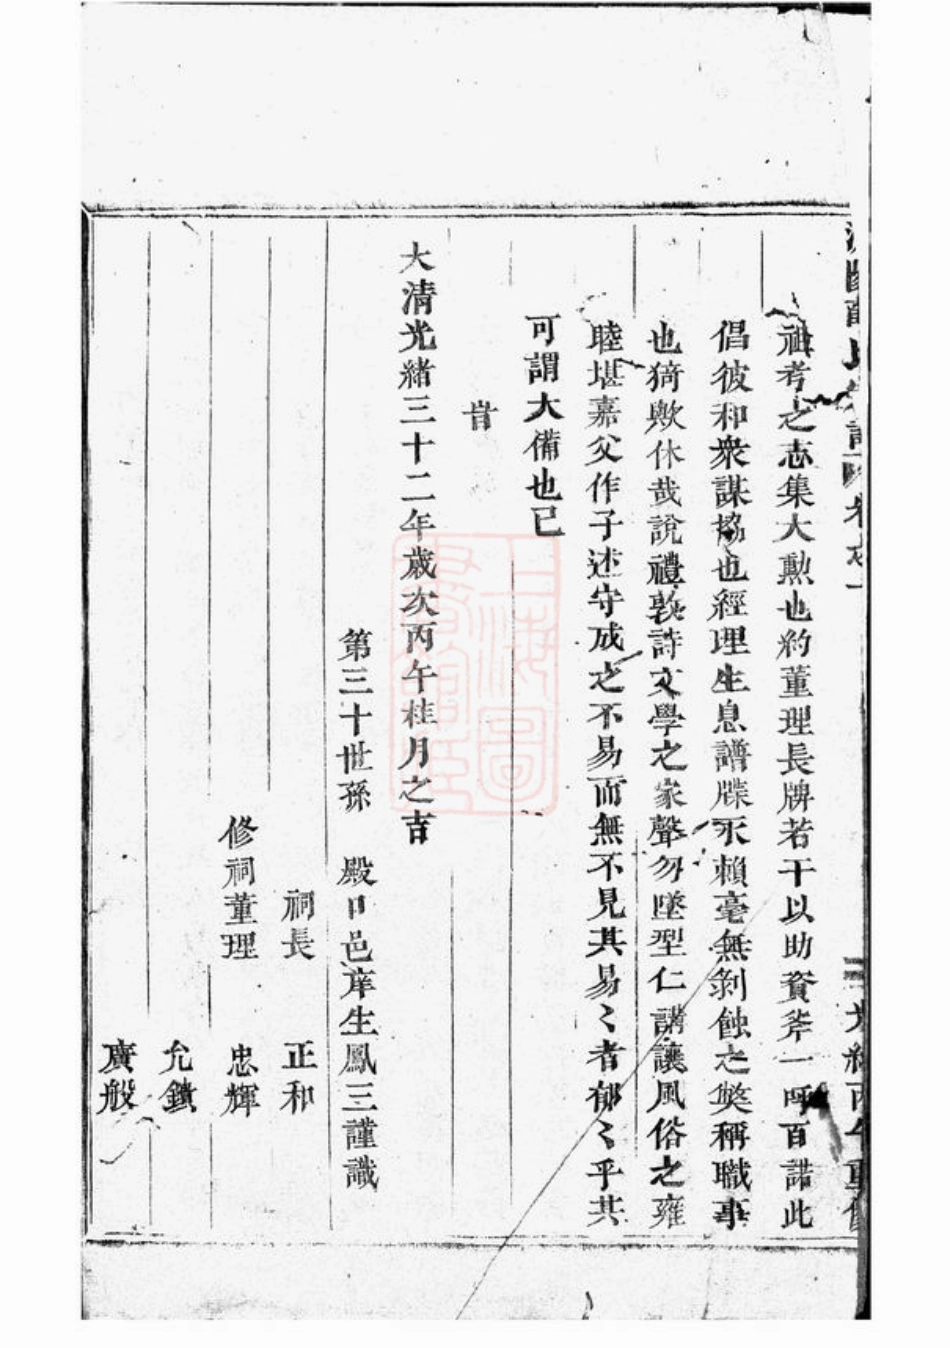 祖考之志集大勲也約董理長牌若干以助資斧一呼百諾此
倡彼和衆謀協也經理生息譜牒永賴毫無剝蝕之獘稱職事
也猗歟休哉說禮敦詩文學之家聲勿墜型仁講讓風俗之雍
睦堪嘉父作子述守成之不易而無不見其易〻者郁〻乎共
可謂大備也已
旹
大清光緒三十二年歲次丙午桂月之吉
第三十世孫 殿口邑庠生鳳三謹識
祠長 正和
修祠董理 忠輝
允鑌
廣般
上海圖書館藏